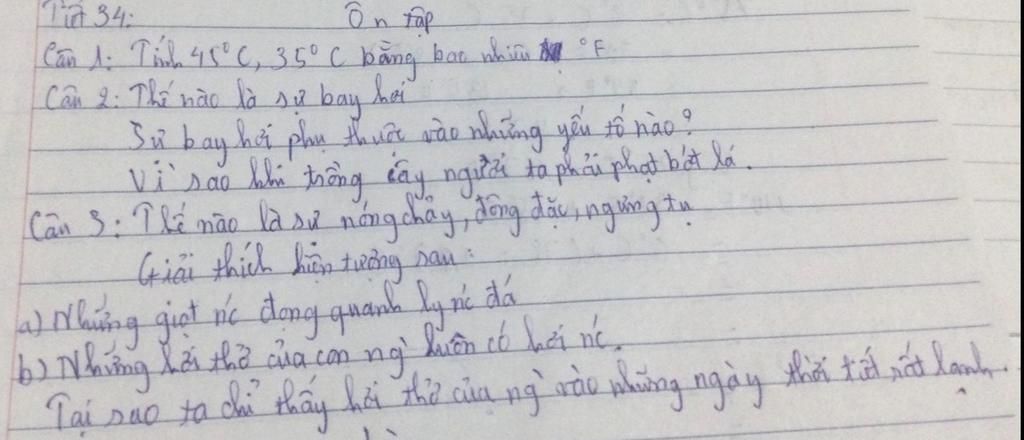 Tiết 34: Ôn tập
Câu 1: Tính 45°C, 35°C bằng bao nhiêu °F
Câu 2: Thế nào là sự bay hơi
Sự bay hơi phụ thuộc vào những yếu tố nào?
Vì sao khi trồng cây người ta phải phạt bớt lá.
Câu 3: Thế nào là sự nóng chảy, đông đặc, ngưng tụ
Giải thích hiện tượng sau:
a) Những giọt nc đọng quanh ly nc đá
b) Những hơi thở của con ng` luôn có hơi nc.
Tại sao ta chỉ thấy hơi thở của ng` vào những ngày thời tiết rất lạnh.